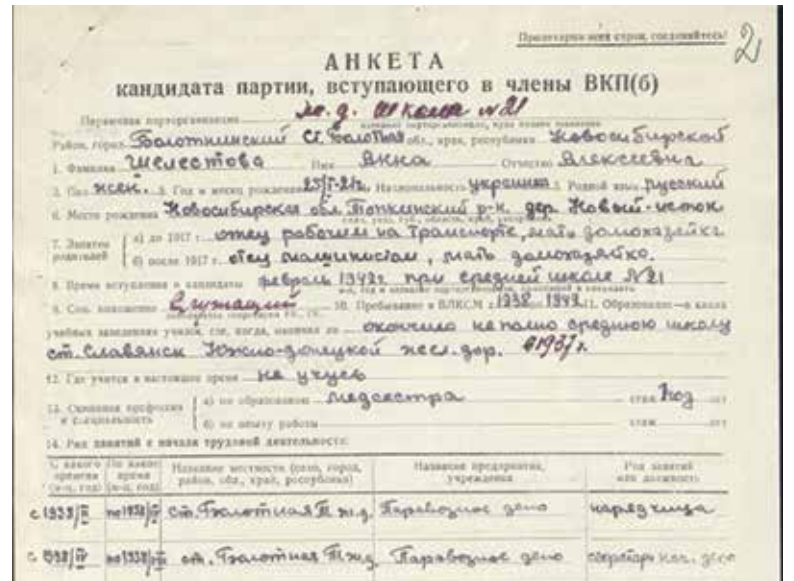 Пролетарии всех стран, соединяйтесь!
2
АНКЕТА
кандидата партии, вступающего в члены ВКП(б)
Первичная парторганизация ж.д. школа №21
Район, город Болотнинский ст. Болотная обл., край, республика Новосибирской
1. Фамилия Шелестова Имя Анна Отчество Алексеевна
2. Пол жен. 3. Год и месяц рождения Национальность украинка 5. Родной язык русский
6. Место рождения Новосибирская обл. Топкинский р-н. дер. Новый-исток
7. Занятие родителей
а) до 1917 г. отец рабочим на транспорте, мать домохозяйка
б) после 1917 г. отец машинистом, мать домохозяйка.
8. Время вступления в кандидаты февраль 1942г. при средней школе №21
9. Соц. положение Служащий 10. Пребывание в ВЛКСМ с 1938 1942 11. Образование—в каких
учебных заведениях учился, где, когда, окончил ли окончила неполно среднюю школу
ст. Славянск Южно-донецкой жел. дор. в 1937г.
12. Где учится в настоящее время не учусь
13. Основная профессия и специальность
а) по образованию медсестра стаж 1 год лет
б) по опыту работы стаж лет
14. Род занятий с начала трудовой деятельности:
С какого времени (м-ц, год) По какое время (м-ц, год) Название местности (село, город, район, обл., край, республика) Название предприятия, учреждения Род занятий или должность
с 1938/II по 1938/IV ст. Болотная Т ж.д. Паровозное депо нарядчица
с 1938/IV по 1938 ст. Болотная Т ж.д. Паровозное депо секретарь нач. депо